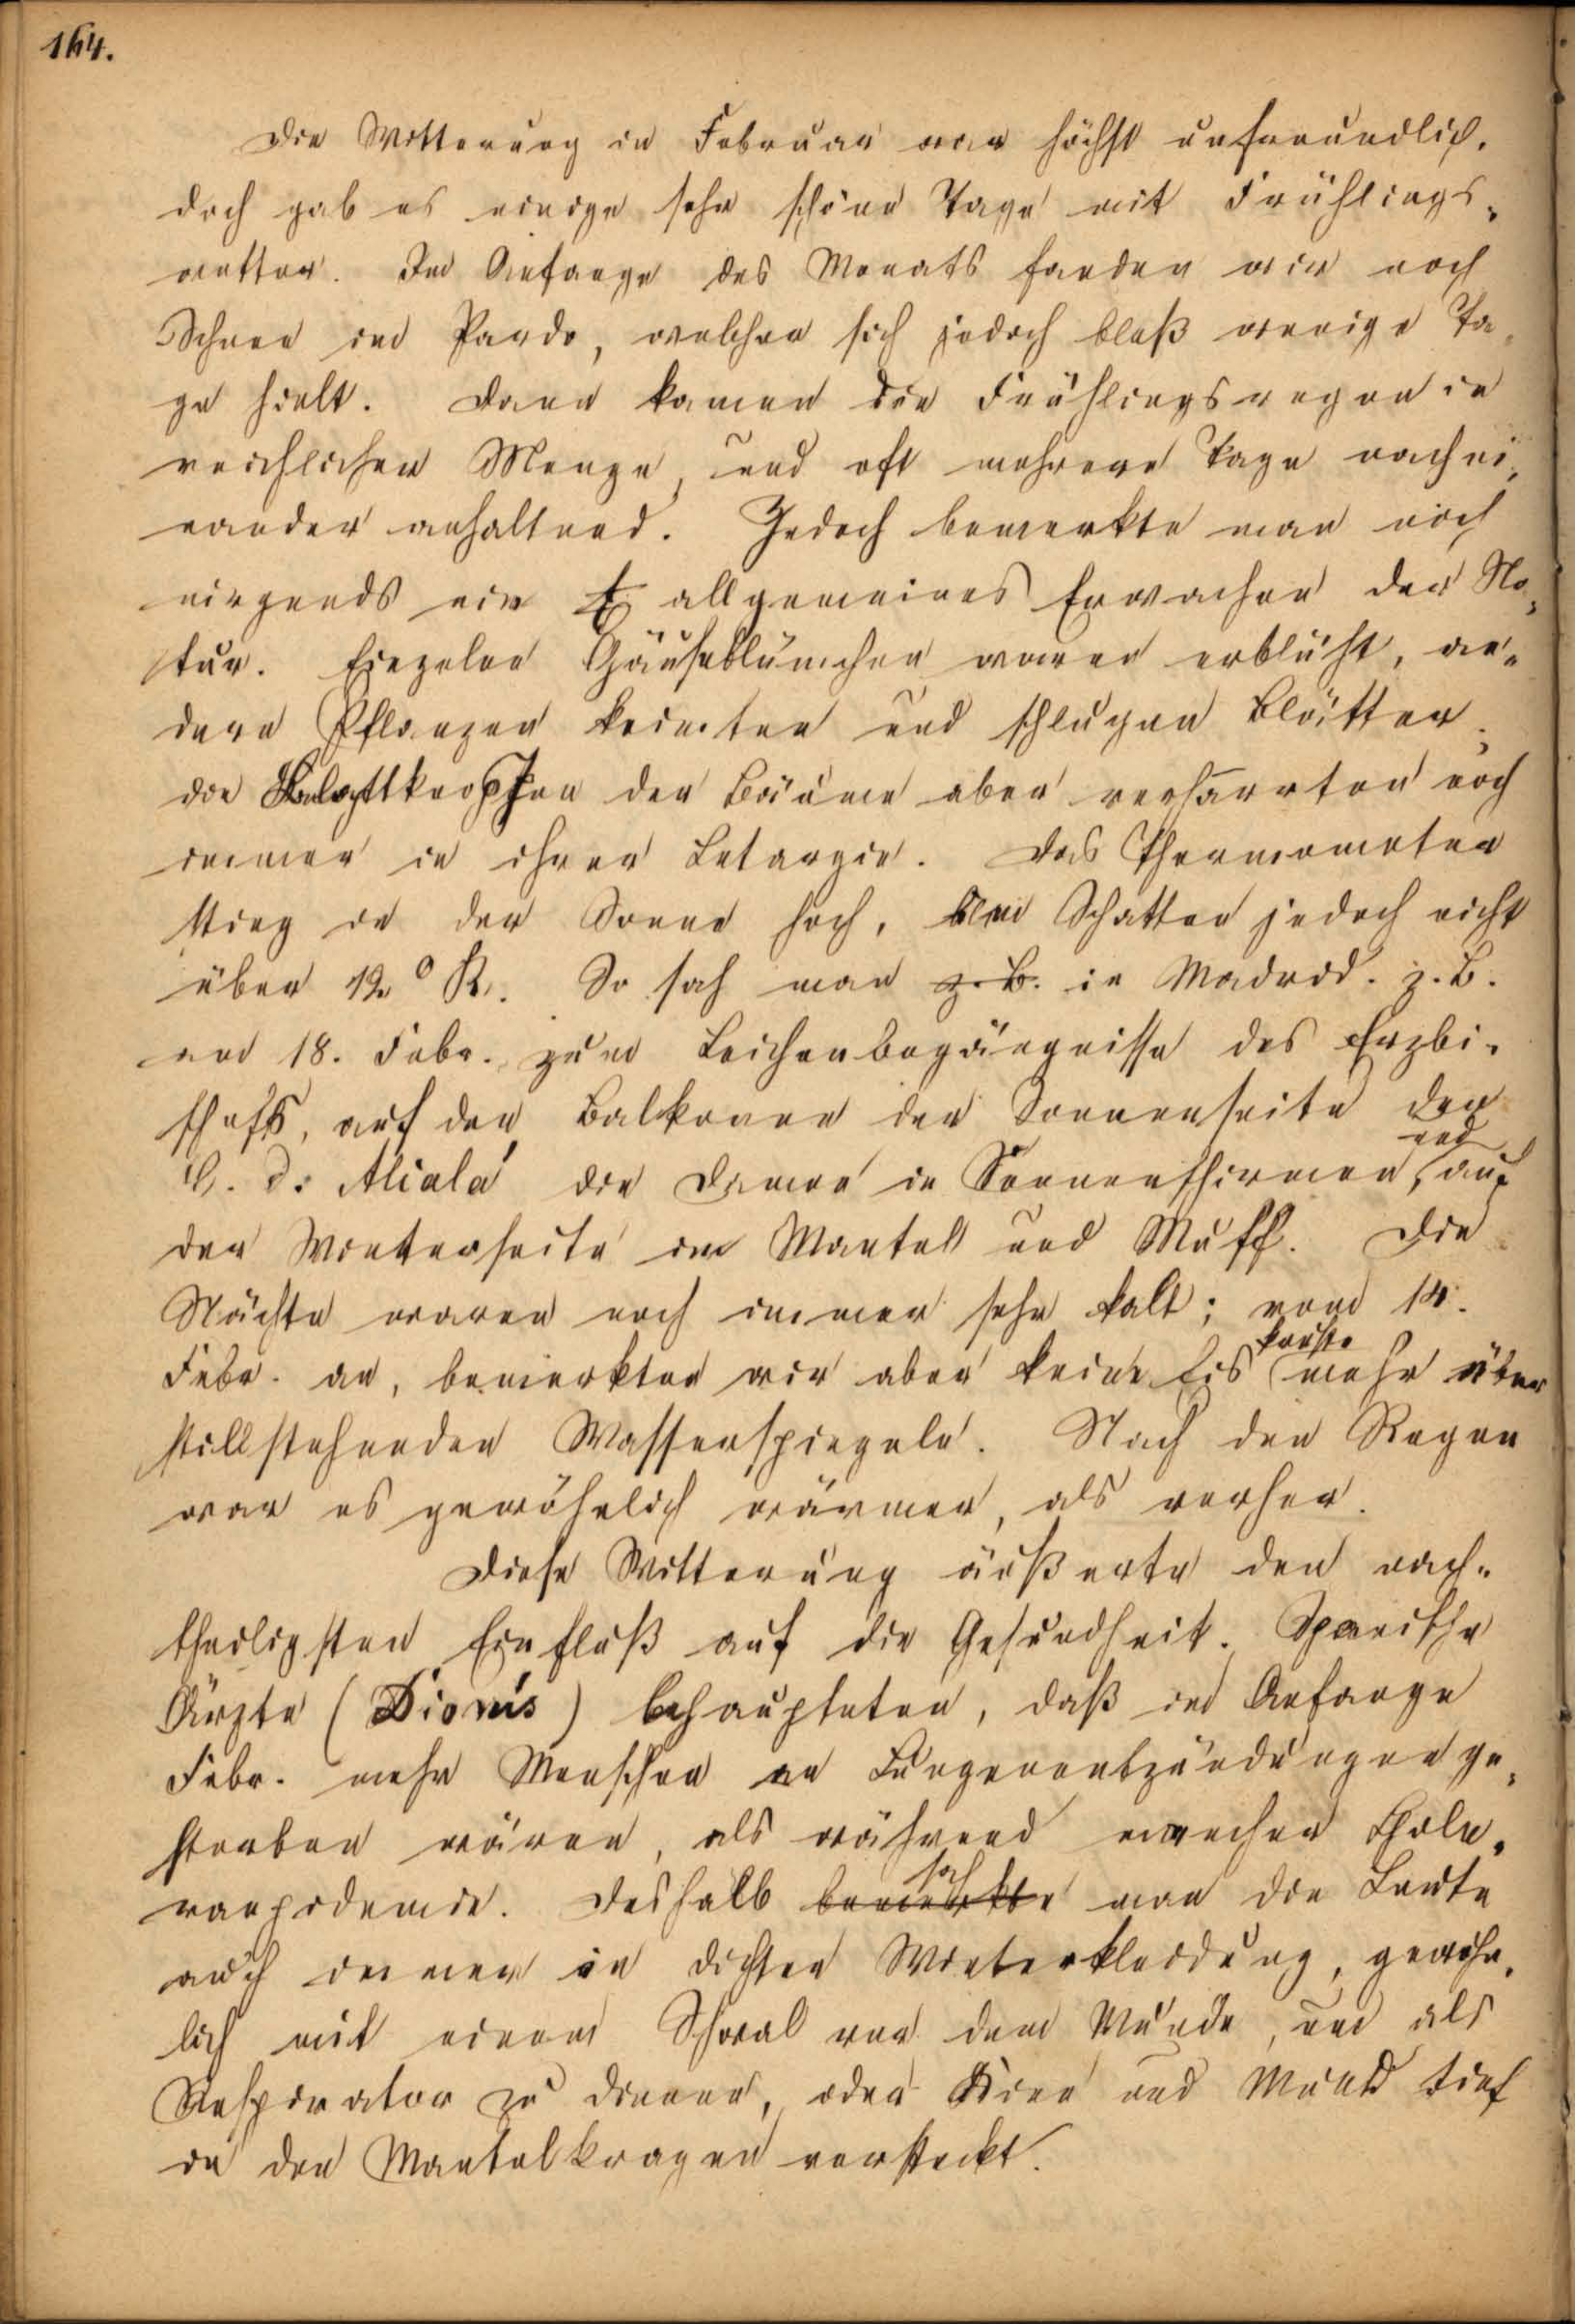 164.
Die Witterung im Februar war höchst unfreundlich.
doch gab es einige sehr schöne Tage mit Frühlings-
wetter. Im Anfange des Monats fanden wir noch
Schnee im Pardo, welcher sich jedoch bloß wenige Ta-
ge hielt. Dann kamen die Frühlingsregen in
reichlicher Menge, und oft mehrere Tage nachei-
nander anhaltend. Jedoch bemerkte man noch
nirgends ein allgemeines Erwachen der Na-
tur. Einzelne Gänseblümchen waren erblüht, an-
dere Pflanzen keimten und schlugen Blätter;
die Blattknospen der Bäume aber verharrten noch
immer in ihrer Letargie. Das Thermometer
stieg in der Sonne hoch, im Schatten jedoch nicht
über 12° R. So sah man z. B. in Madrid. z. B.
am 18. Febr. zum Leichenbegängnisse des Erzbi-
schofs, auf den Balkonen der Sonnenseite der
und
C. d. Alcalá die Damen in Sonnenschirmen, auf
der Winterseite im Mantel und Muff. Die
Nächte waren noch immer sehr kalt; vom 14.
kruste
Febr. an, bemerkten wir aber keine Eis mehr über
stillstehenden Wasserspiegeln. Nach dem Regen
war es gewöhnlich wärmer, als vorher.
Diese Witterung äußerte den nach-
theiligsten Einfluß auf die Gesundheit. Spanische
Ärzte (Dionis) behaupteten, daß im Anfange
Febr. mehr Menschen an Lungenentzündungen ge-
storben wären, als während mancher Chole-
sah
raepidemie. Deshalb bemerkte man die Leute
auch immer in dichter Winterkleidung, gewöhn-
lich mit einem Shwal vor dem Munde, um als
Respirator zu dienen, oder Kinn und Mund tief
in den Mantelkragen versteckt.